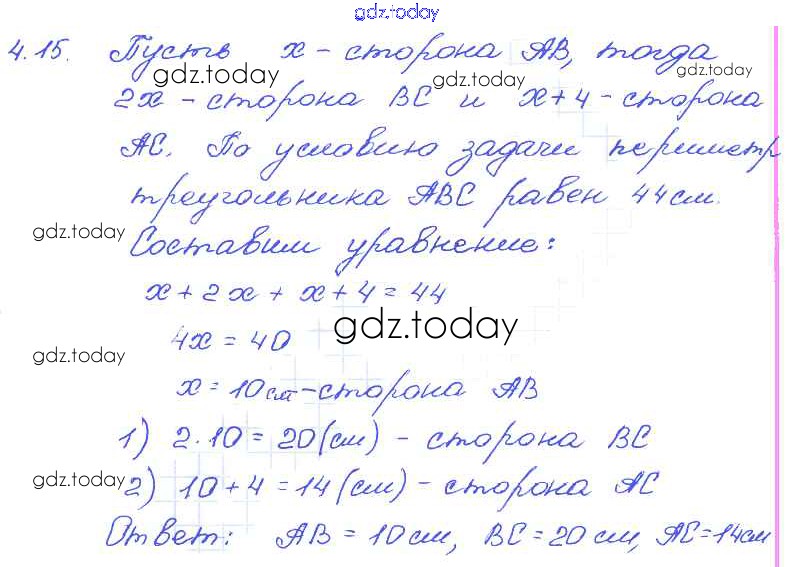 gdz.today
4.15. Пусть x - сторона AB, тогда
gdz.today gdz.today gdz.today
2x - сторона BC и x+4 - сторона
AC. По условию задачи периметр
треугольника ABC равен 44 см.
gdz.today
Составим уравнение:
x + 2x + x + 4 = 44
gdz.today
4x = 40
gdz.today
x = 10 см - сторона AB
1) 2·10 = 20 (см) - сторона BC
gdz.today
2) 10 + 4 = 14 (см) - сторона AC
Ответ: AB = 10 см, BC = 20 см, AC = 14 см